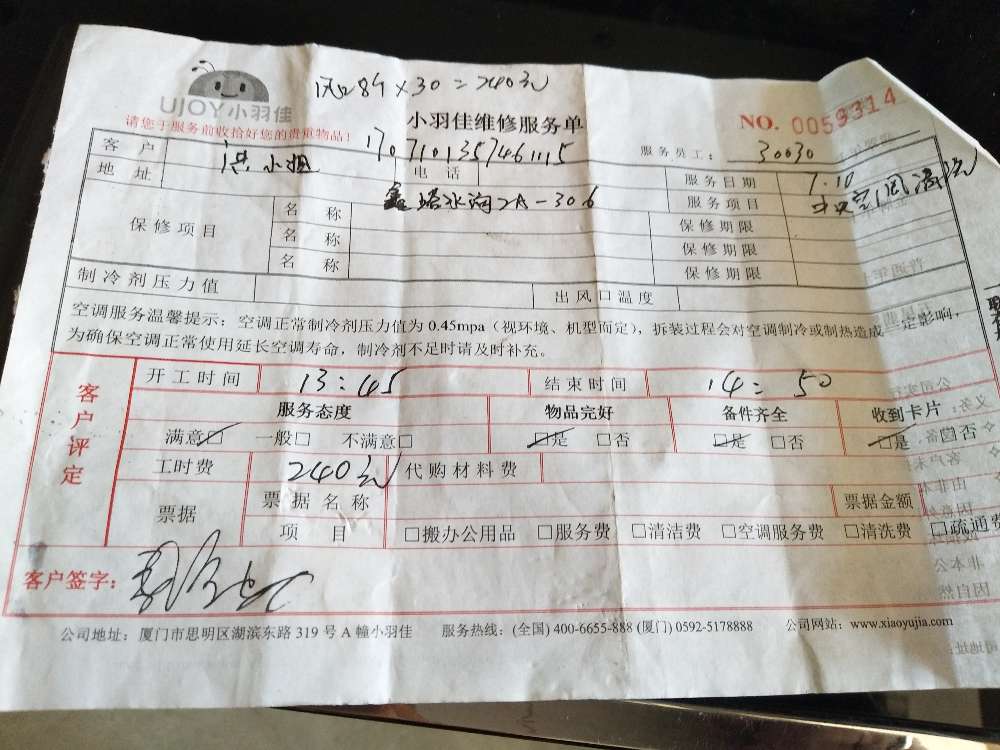 风口8个×30=240元
UJOY小羽佳
请您于服务前收拾好您的贵重物品!
小羽佳维修服务单
NO. 0059314
客户 洪小姐 电话 1707101357461115 服务员工: 30030
地址 2A-306 服务日期 7.10
服务项目 中央空调风清洗
保修项目 名称 保修期限
名称 保修期限
名称 保修期限
制冷剂压力值 出风口温度
空调服务温馨提示:空调正常制冷剂压力值为0.45mpa(视环境、机型而定),拆装过程会对空调制冷或制热造成一定影响,
为确保空调正常使用延长空调寿命,制冷剂不足时请及时补充。
客户评定
开工时间 13:45 结束时间 14:50
服务态度 物品完好 备件齐全 收到卡片
满意☑ 一般□ 不满意□ ☑是 □否 ☑是 □否 ☑是 □否
工时费 240元 代购材料费
票据 票据名称 票据金额
项目 □搬办公用品 □服务费 □清洁费 □空调服务费 □清洗费 □疏通费
客户签字:
公司地址:厦门市思明区湖滨东路319号A幢小羽佳 服务热线:(全国)400-6655-888(厦门)0592-5178888 公司网站:www.xiaoyujia.com